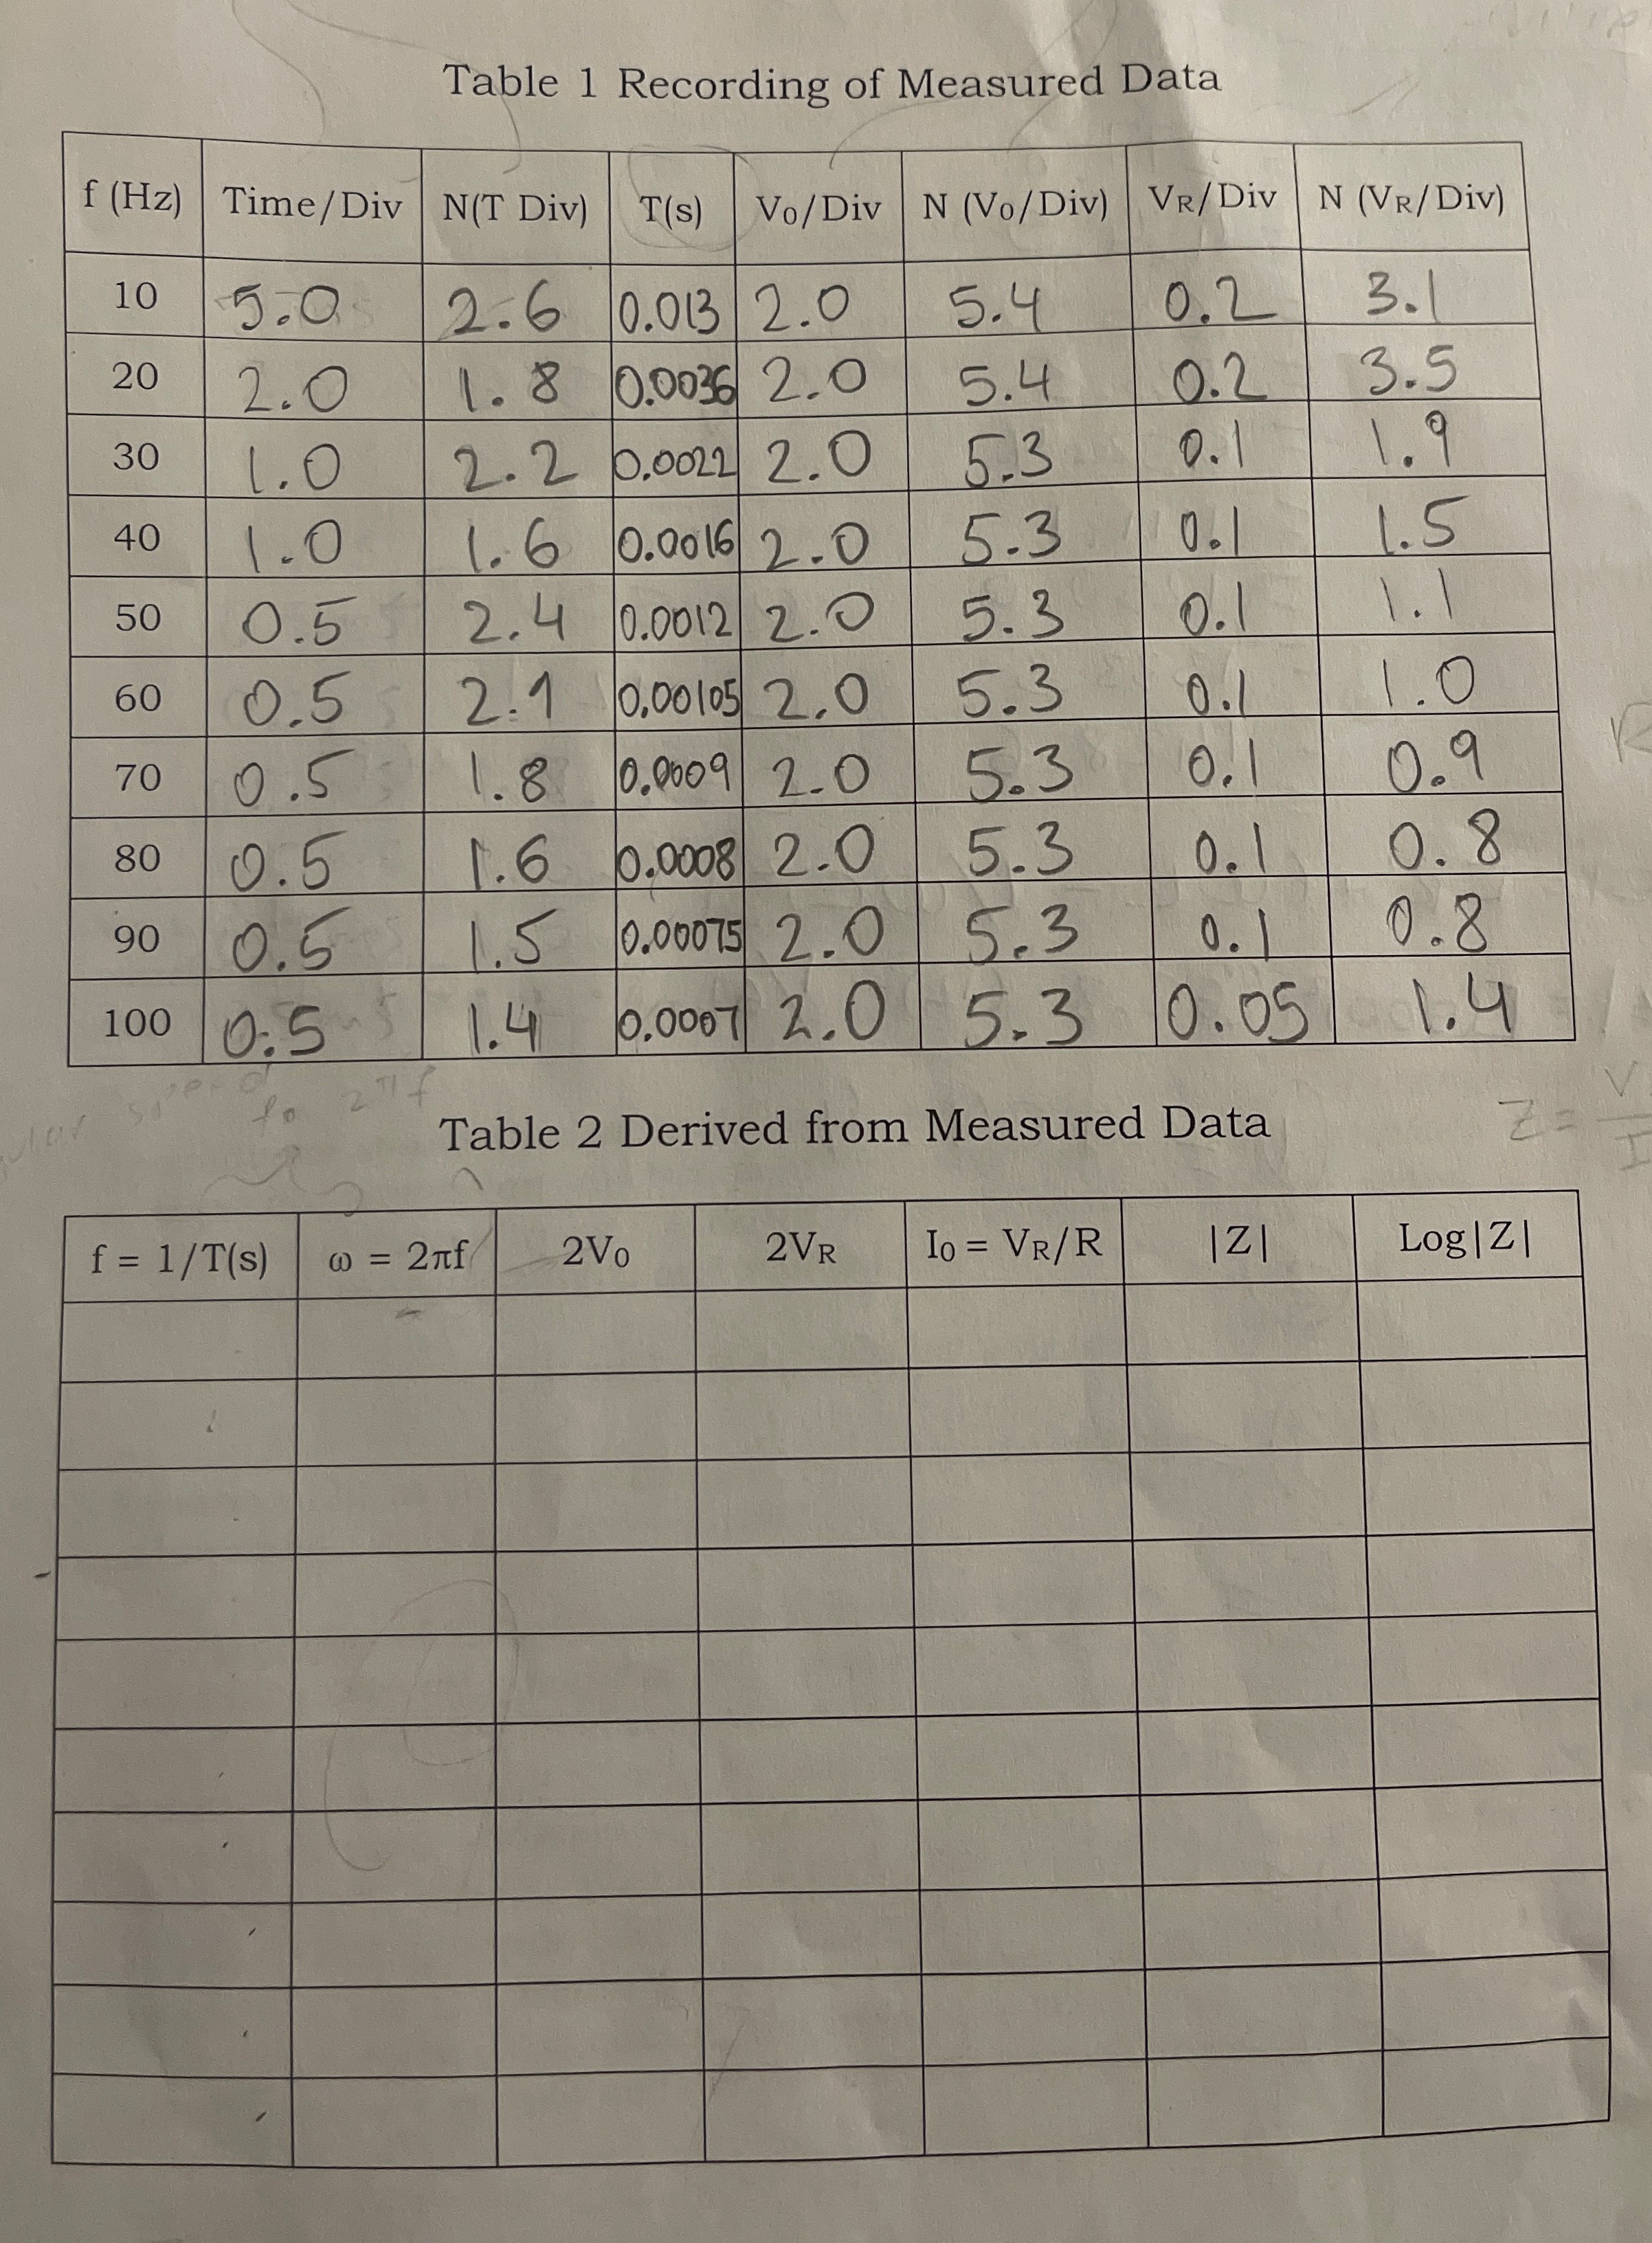 Table 1 Recording of Measured Data
f (Hz) Time/Div N(T Div) T(s) V0/Div N (V0/Div) VR/Div N (VR/Div)
10 5.0 2.6 0.013 2.0 5.4 0.2 3.1
20 2.0 1.8 0.0036 2.0 5.4 0.2 3.5
30 1.0 2.2 0.0022 2.0 5.3 0.1 1.9
40 1.0 1.6 0.0016 2.0 5.3 0.1 1.5
50 0.5 2.4 0.0012 2.0 5.3 0.1 1.1
60 0.5 2.1 0.00105 2.0 5.3 0.1 1.0
70 0.5 1.8 0.0009 2.0 5.3 0.1 0.9
80 0.5 1.6 0.0008 2.0 5.3 0.1 0.8
90 0.5 1.5 0.00075 2.0 5.3 0.1 0.8
100 0.5 1.4 0.0007 2.0 5.3 0.05 1.4
to 2πf
Table 2 Derived from Measured Data
Z = V/I
f = 1/T(s) ω = 2πf 2V0 2VR I0 = VR/R |Z| Log|Z|